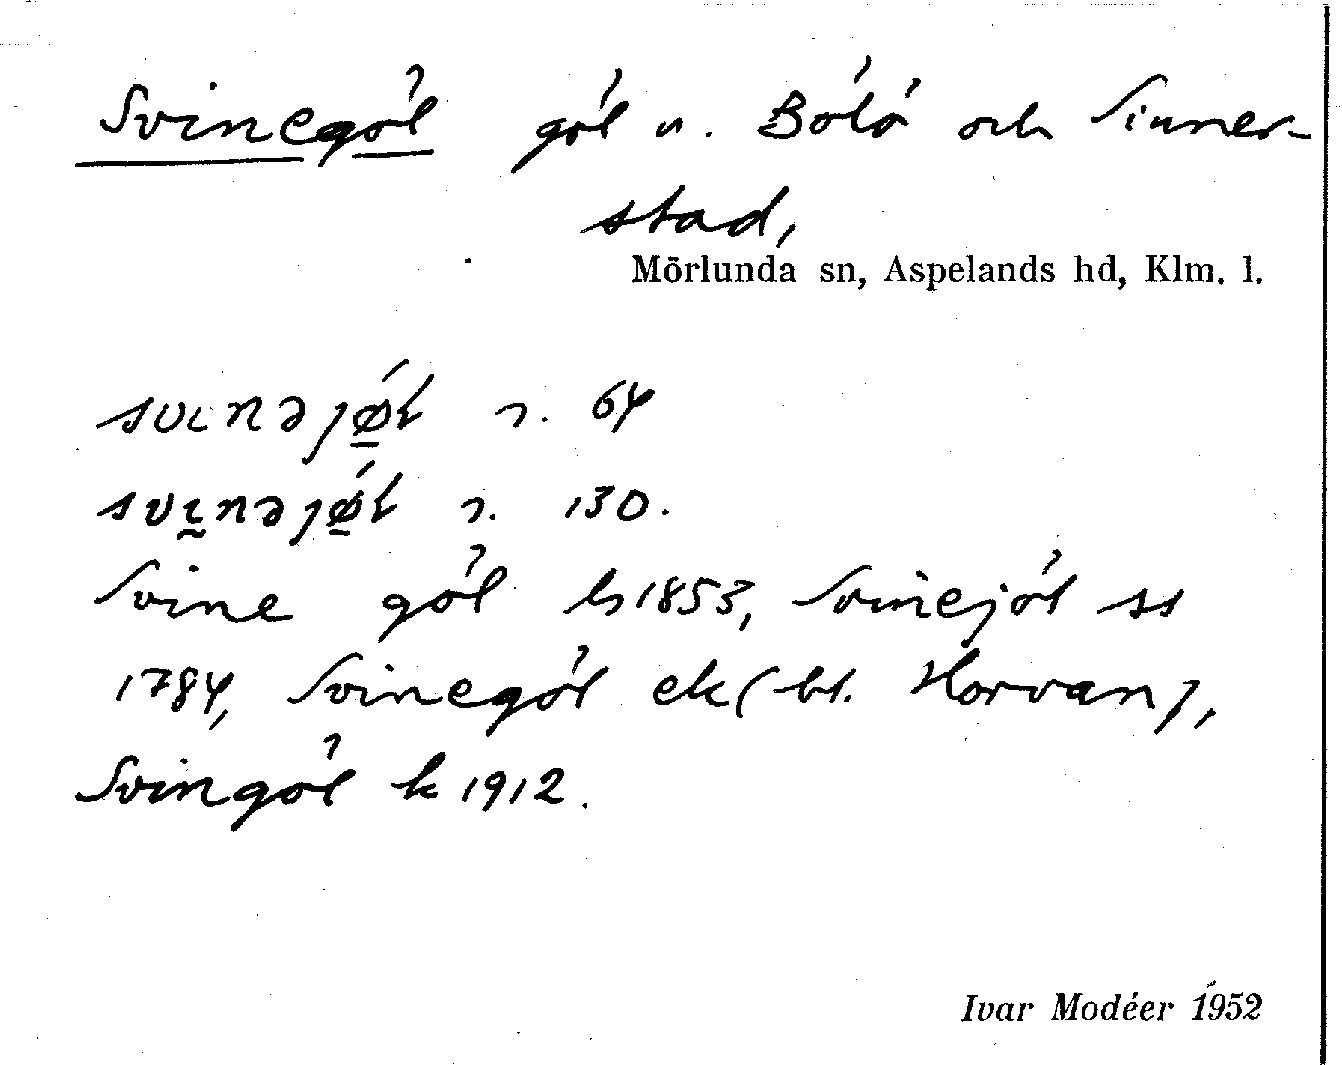 Svinegöl göl u. Bölö och Sinner-
stad,
Mörlunda sn, Aspelands hd, Klm. l.
svɩnəjø̱l s. 64
svɩ̰nəjø̱l s. 130.
Svine göl ls 1853, Svinejöl ss
1784, Svinegöl ek (bl. Horvan),
Svingöl k 1912.
Ivar Modéer 1952